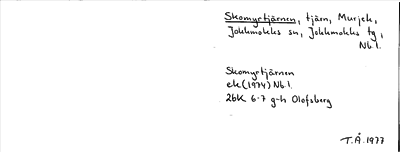 Skomyrtjärnen, tjärn, Murjek,
Jokkmokks sn, Jokkmokks tg,
Nb.l.
Skomyrtjärnen
ek (1974) Nb.l.
26K 6-7 g-h Olofsberg
T.Å. 1977